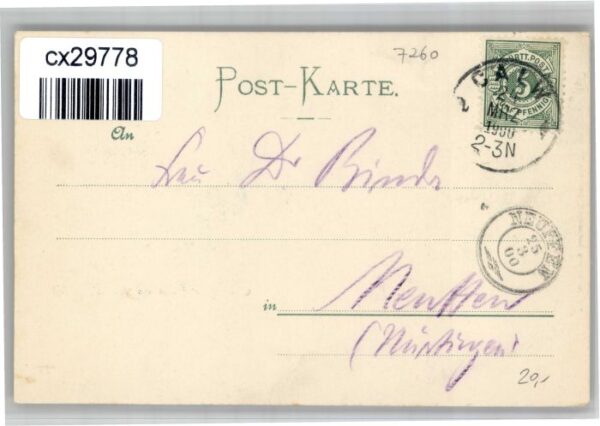 cx29778
7260
POST-KARTE.
K. WÜRTT. POST
5
PFENNIG
CALW
MRZ
1900
2-3N
An
Frau Dr Binder
NEUFFEN
25
3
00
in Neuffen
(Nürtingen)
20,-